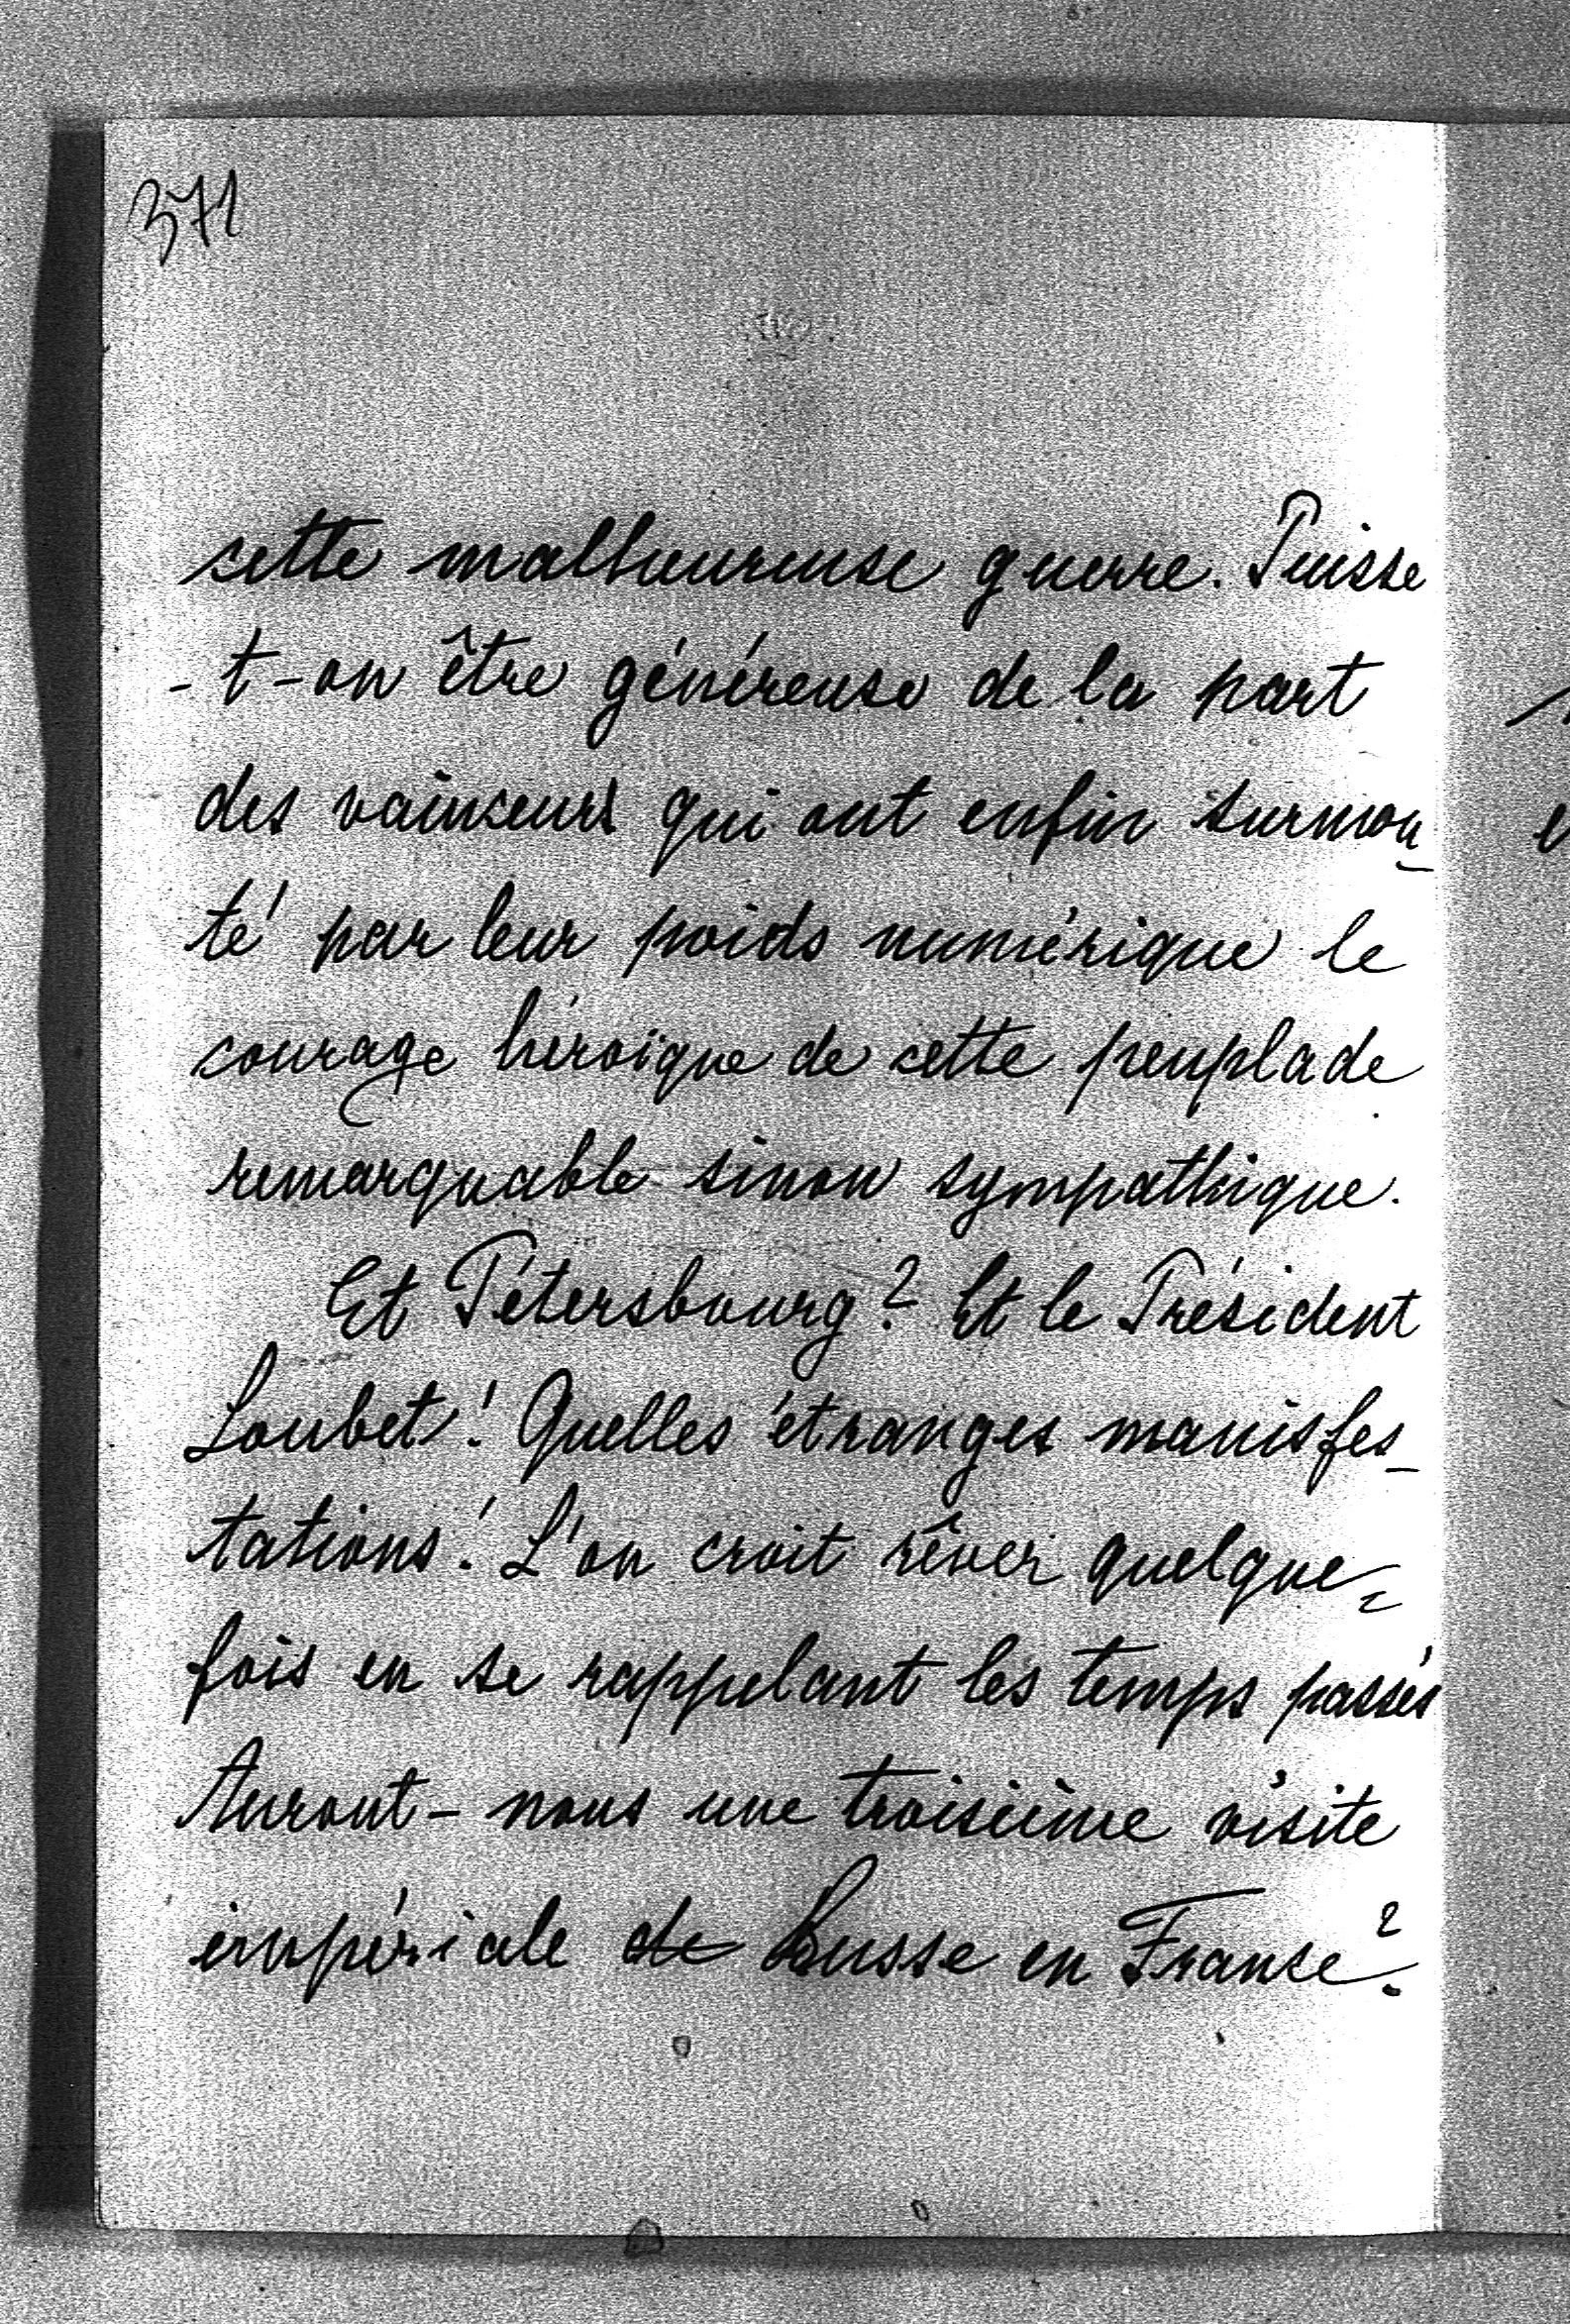 371
cette malheureuse guerre. Puisse
-t-on être généreuse de la part
des vainceurs qui ont enfin surmon-
té par leur poids numérique le
courage héroïque de cette peuplade
remarquable sinon sympathique.
Et Pétersbourg? Et le Président
Loubet! Quelles étranges manisfes-
tations! L'on croit rêver quelque=
fois en se rappelant les temps passés
Auront-nous une troisième visite
impériale de Russe en France?